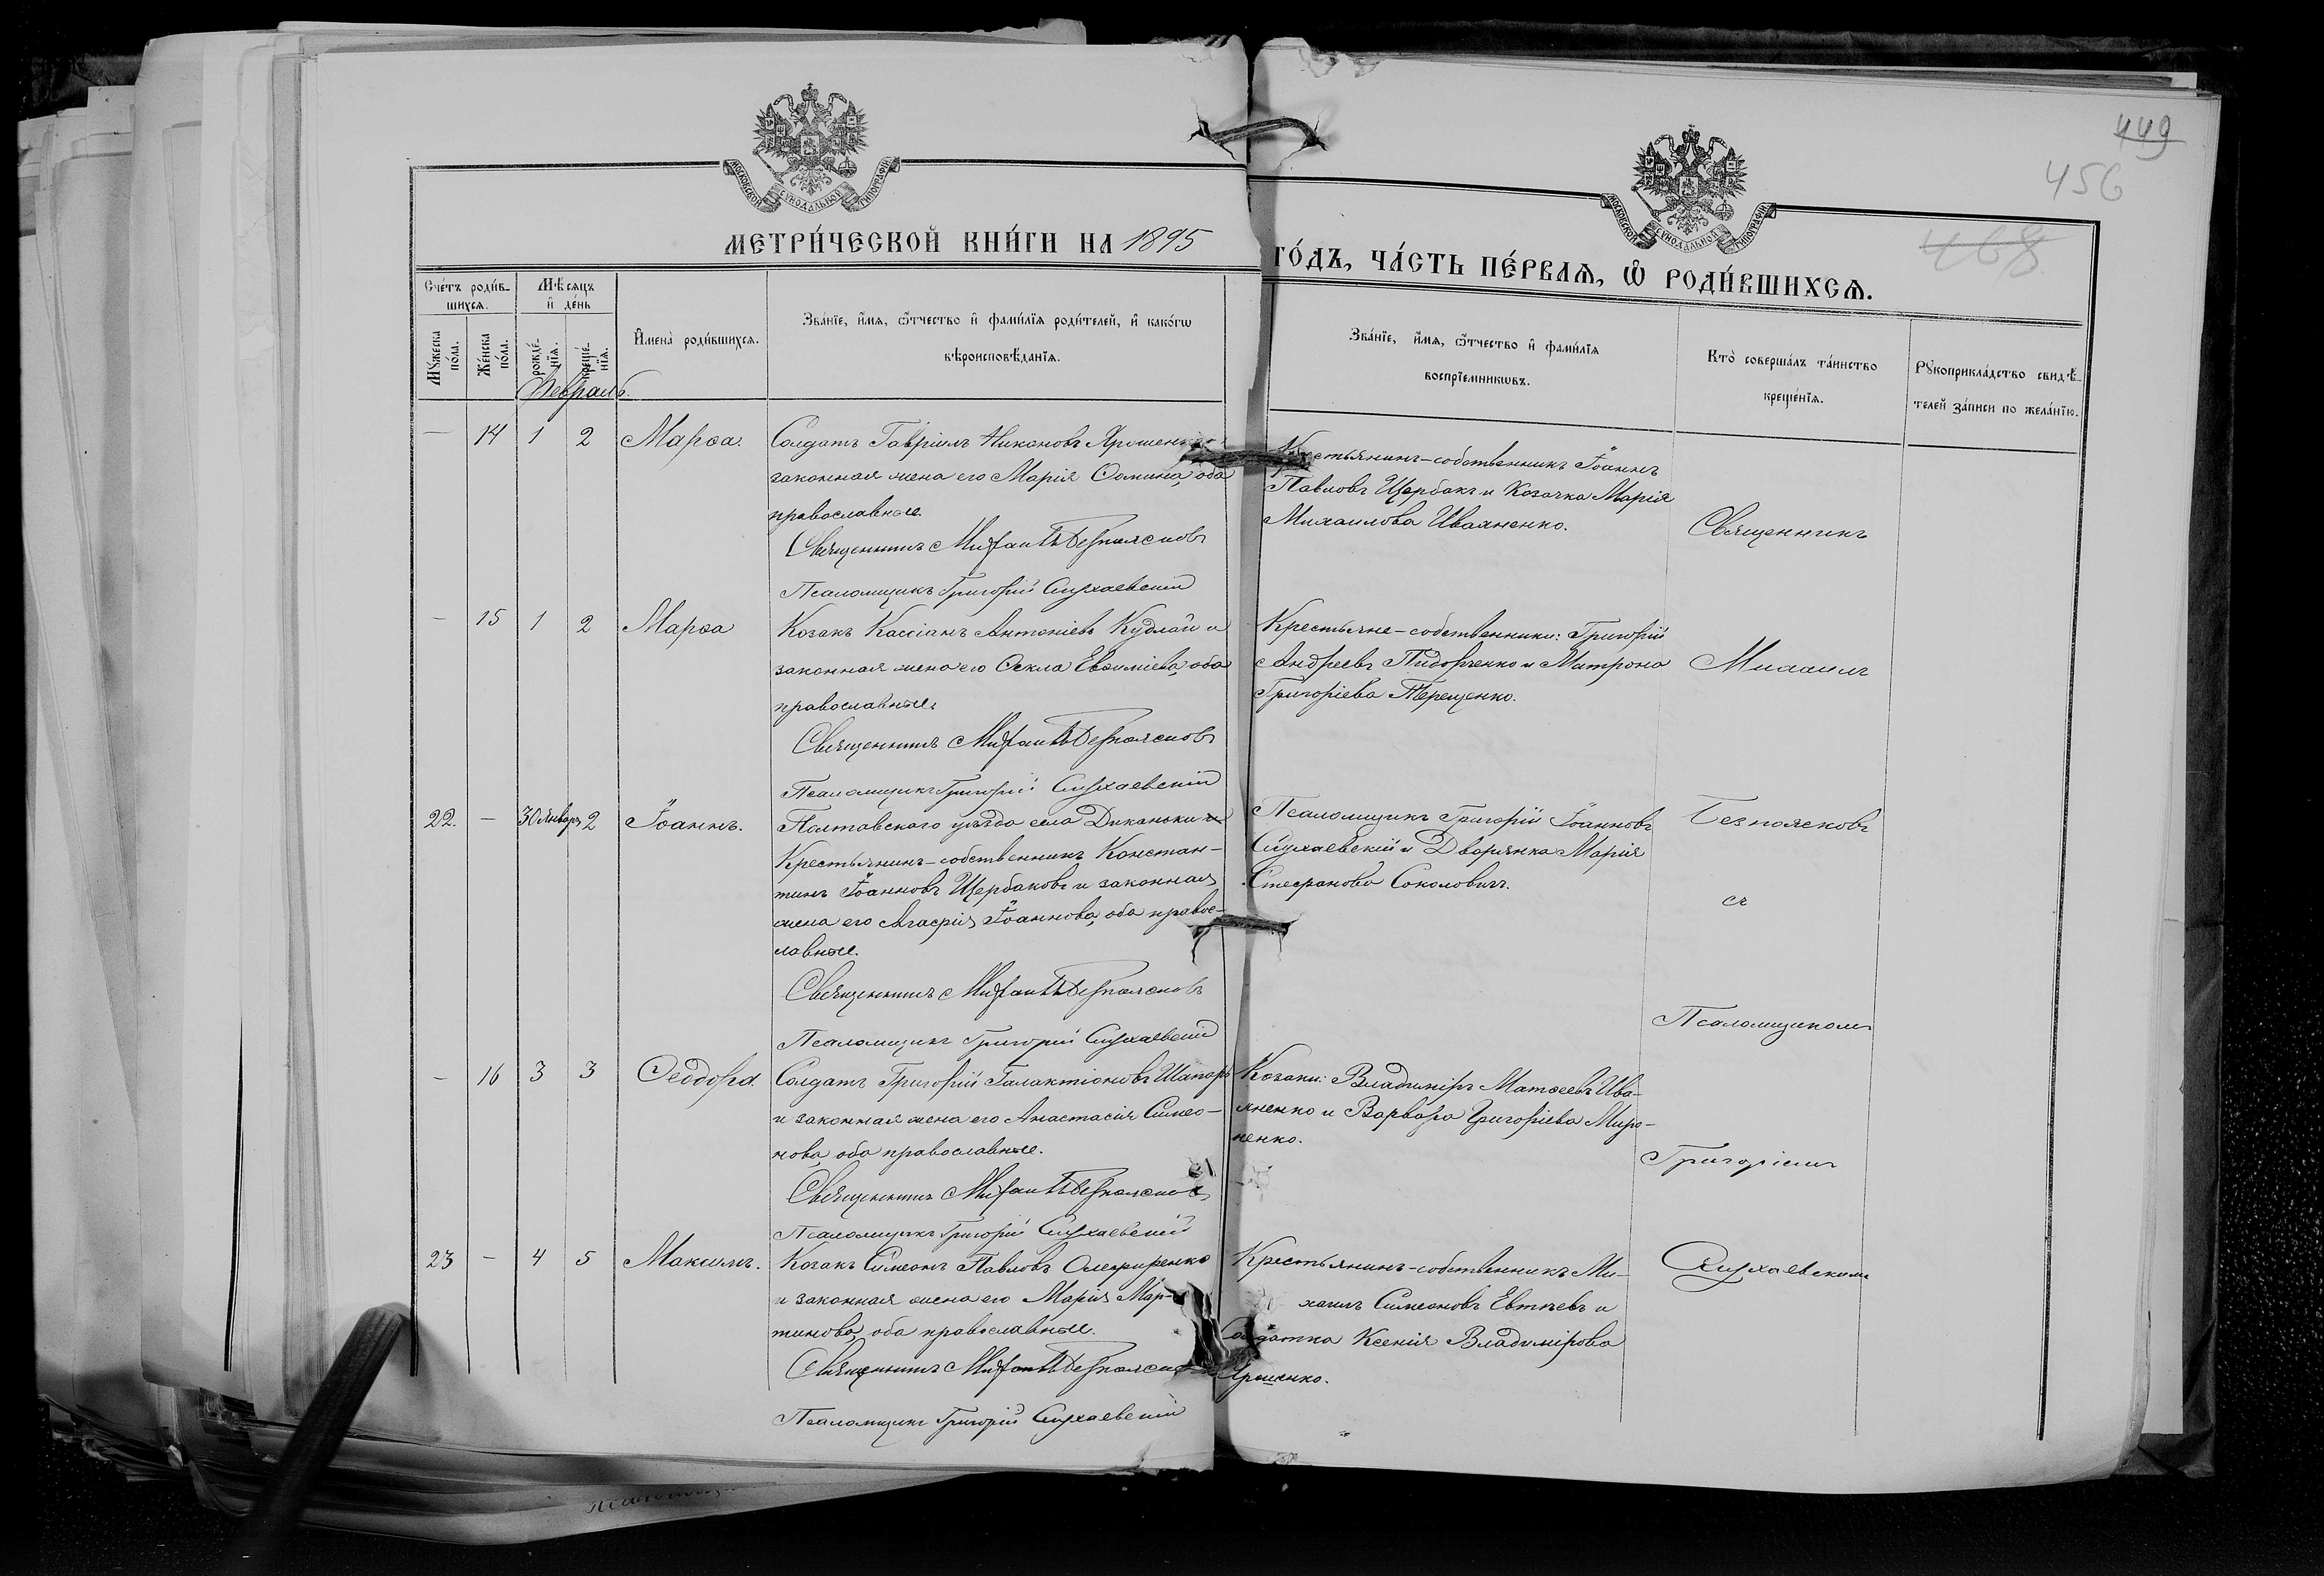 449
456
468
МОСКОВСКОЙ СУНОДАЛЬНОЙ ТИПОГРАФІИ
МОСКОВСКОЙ СУНОДАЛЬНОЙ ТИПОГРАФІИ
МЕТРИ́ЧЕСКОЙ КНИ́ГИ НА 1895
ГО́ДЪ, ЧА́СТЬ ПЕ́РВАѦ, Ѡ РОДИ́ВШИХСѦ.
Сче́тъ роди́в-
шихсѧ.
Мѣсѧцъ
и҆ де́нь
Мꙋ́жеска по́ла.
Же́нска по́ла.
рожде́-
нїѧ.
креще́-
нїѧ.
И҆мена̀ роди́вшихсѧ.
Зва́нїе, и҆́мѧ, ѻ҆́тчество и҆ фами́лїѧ роди́телей, и҆ како́гѡ
вѣроисповѣ́данїѧ.
Зва́нїе, и҆́мѧ, ѻ҆́тчество и҆ фами́лїѧ
воспрїе́мникѡвъ.
Кто̀ соверша́лъ та́инство
креще́нїѧ.
Рꙋкоприкла́дство свидѣ́-
телей за́писи по жела́нїю.
Февраль.
— 14 1 2 Марѳа.
Солдатъ Гавріилъ Никоновъ Ярошенко и
законная жена его Марія Ѳомина, оба
православные.
Священникъ Михаилъ Безпоясковъ
Псаломщикъ Григорій Слухаевскій
Крестьянинъ-собственникъ Іоаннъ
Павловъ Щербакъ и Козачка Марія
Михаилова Иваненко.
Священникъ
— 15 1 2 Марѳа
Козакъ Кассіанъ Антоніевъ Кудлай и
законная жена его Ѳекла Евѳиміева, оба
православные.
Священникъ Михаилъ Безпоясковъ
Псаломщикъ Григорій Слухаевскій
Крестьяне-собственники: Григорій
Андреевъ Пидорченко и Матрона
Григоріева Терещенко.
Михаилъ
22. — 30 Январ. 2 Іоаннъ.
Полтавскаго уѣзда села Диканьки
Крестьянинъ-собственникъ Констан-
тинъ Іоанновъ Щербаковъ и законная
жена его Агафія Іоаннова, оба правос-
лавные.
Священникъ Михаилъ Безпоясковъ
Псаломщикъ Григорій Слухаевскій
Псаломщикъ Григорій Іоанновъ
Слухаевскій и Дворянка Марія
Стефанова Соколовичъ.
Безпоясковъ
съ
Псаломщикомъ
— 16 3 3 Ѳеодора
Солдатъ Григорій Галактіоновъ Шапаръ
и законная жена его Анастасія Симео-
нова, оба православные.
Священникъ Михаилъ Безпоясковъ
Псаломщикъ Григорій Слухаевскій
Козаки: Владиміръ Матѳеевъ Ива-
яненко и Варвара Григоріева Миро-
ненко.
Григоріемъ
23 — 4 5 Максимъ.
Козакъ Симеонъ Павловъ Олефиренко
и законная жена его Марія Мар-
тинова, оба православные.
Священникъ Михаилъ Безпоясковъ
Псаломщикъ Григорій Слухаевскій
Крестьянинъ-собственникъ Ми-
хаилъ Симеоновъ Евтѣевъ и
Солдатка Ксенія Владимірова
Ярошенко.
Слухаевскимъ